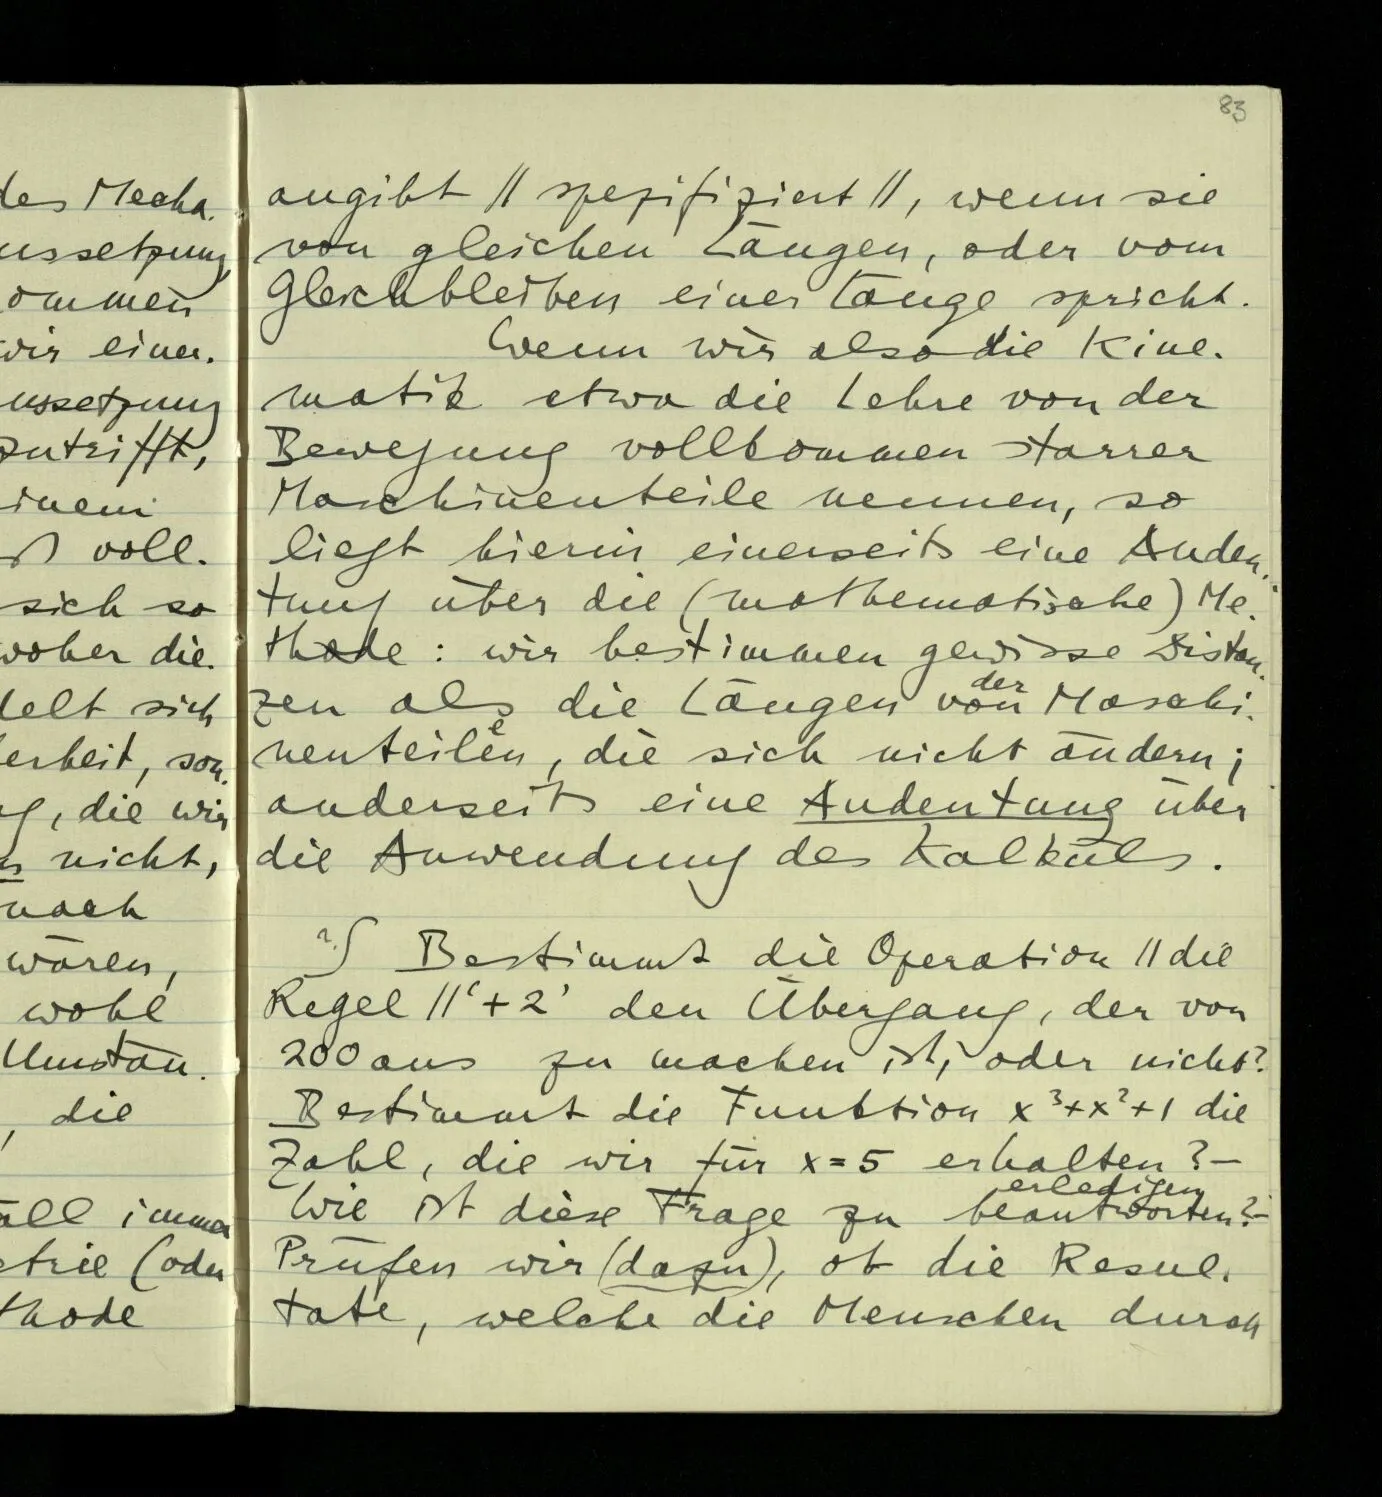 des Mecha.
ussetzung
ommen
wir einer.
ussetzung
zutrifft,
inem
voll.
sich so
woher die.
delt sich
erheit, son.
g, die wir
nicht,
nach
wären,
wohl
Umstän.
, die
all immer
etrie (oder
thode
83
angibt // spezifiziert //, wenn sie
von gleichen Längen, oder vom
Gleichbleiben einer Länge spricht.
Wenn wir also die Kine.
matik etwa die Lehre von der
Bewegung vollkommen starrer
Maschinenteile nennen, so
liegt hierin einerseits eine Andeu.
tung über die (mathematische) Me.
thode : wir bestimmen gewisse Distan.
zen als die Längen von der Maschi.
nenteilen e, die sich nicht ändern;
anderseits eine Andeutung über
die Anwendung des Kalküls.
?∫ Bestimmt die Operation // die
Regel // '+2' den Übergang, der von
200 aus zu machen ist, oder nicht?
Bestimmt die Funktion x³+x²+1 die
Zahl, die wir für x=5 erhalten?–
erledigen
Wie ist diese Frage zu beantworten?–
Prüfen wir (dazu), ob die Resul.
tate, welche die Menschen durch